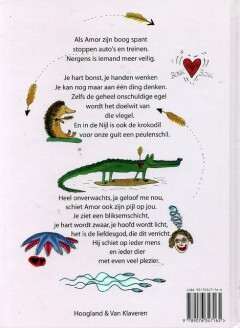 Als Amor zijn boog spant
stoppen auto's en treinen.
Nergens is iemand meer veilig.
BOM BOM
Je hart bonst, je handen wenken
Je kan nog maar aan één ding denken.
Zelfs de geheel onschuldige egel
wordt het doelwit van
die vlegel.
En in de Nijl is ook de krokodil
voor onze guit een peulenschil.
Heel onverwachts, ja geloof me nou,
schiet Amor ook zijn pijl op jou.
Je ziet een bliksemschicht,
je hart wordt zwaar, je hoofd wordt licht,
het is de liefdesgod, die dit verricht.
Hij schiet op ieder mens
en ieder dier
met even veel plezier.
Hoogland & Van Klaveren